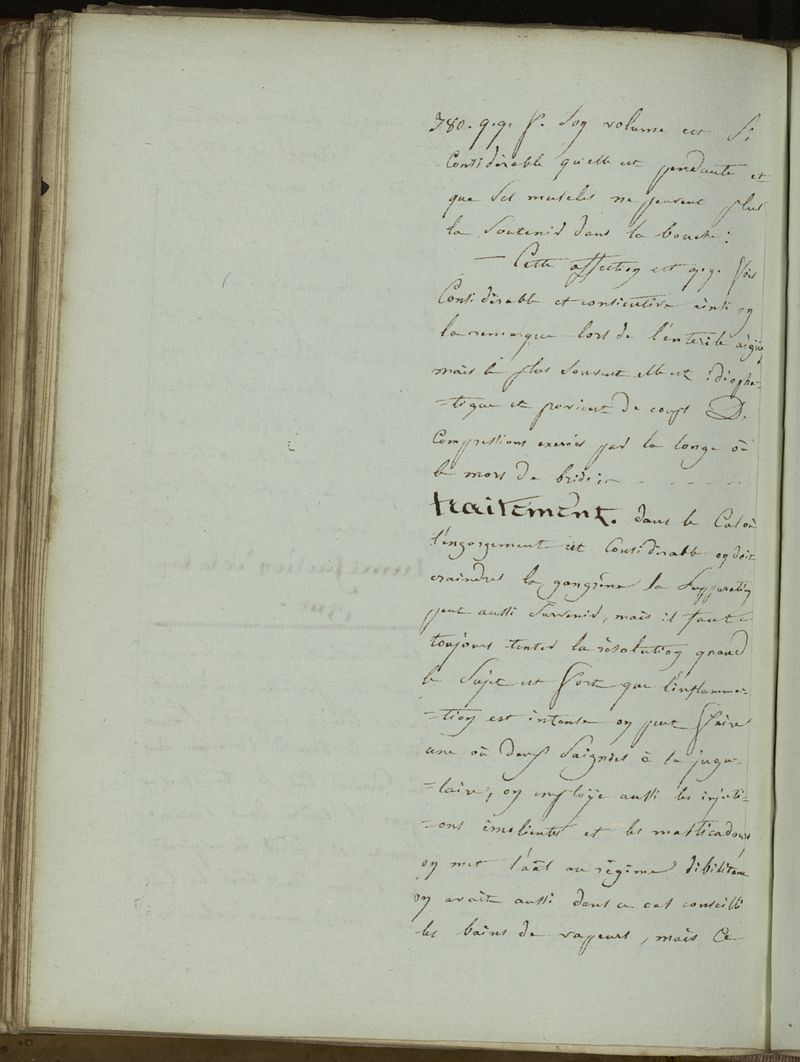 380. q.q. f. Son volume est Si
Considèrable qu'elle est pendante et
que Ses muscles ne peuvent plus
la Soutenir dans la bouche:
— Cette affection est q.q. fois
Considèrable et consécutive ainsi on
la remarque lors de l'enterite aigüe
mais le plus Souvent elle est idiopha-
-tique et provient de coups De
Compressions exercées par la longe où
le mors de bride:
traitement. dans le Cas où
l'engorgement est Considèrable on doit
craindres la gangrène la Suppuration
peut aussi Survenir, mais il faut
toujours tenter la rèsolution quand
le Sujet est fort que l'inflamma-
-tion est intense on peut faire
une où deux Saignées à la jugu-
-laire, on employe aussi les injecti-
-ons èmolientes et les masticadours
on met l'aãl au règime dibilitant
on avait aussi dans ce cas conseillé
les bains de vapeurs, mais Ce